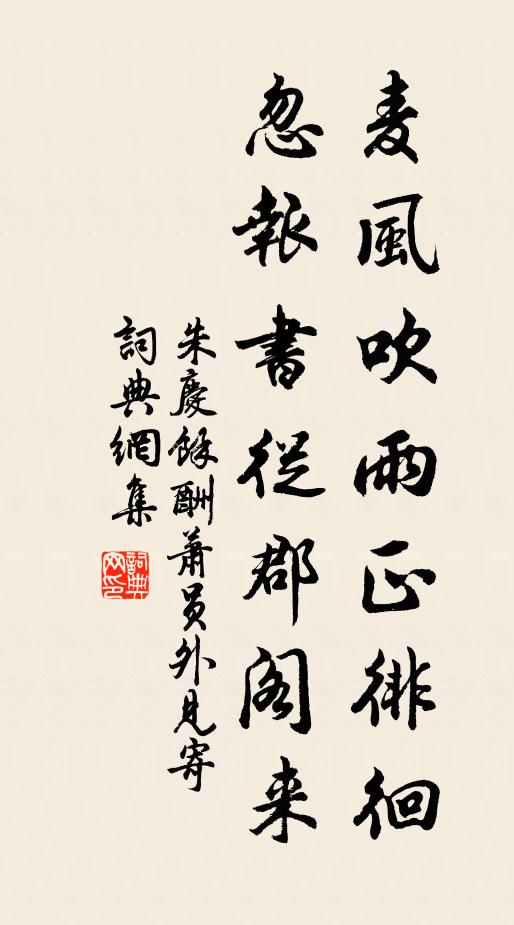 麦風吹雨正徘徊
忽報書從郡閣来
朱慶餘酬蕭員外見寄
詞典網集
詞典
网印